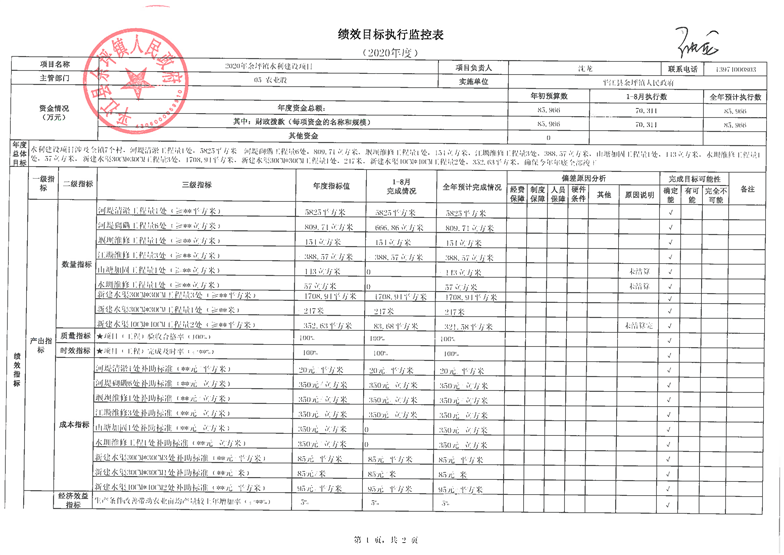 绩效目标执行监控表
（2020年度）
平江县余坪镇人民政府
项目名称 2020年余坪镇水利建设项目 项目负责人 沈龙 联系电话 13974000803
主管部门 05 农业股 实施单位 平江县余坪镇人民政府
资金情况（万元） 年初预算数 1-8月执行数 全年预计执行数
年度资金总额： 85,966 70,311 85,966
其中：财政拨款（每项资金的名称和规模） 85,966 70,311 85,966
其他资金 0
年度总体目标
水利建设项目涉及全镇7个村，河堤清淤工程量1处，5825平方米 河堤砌磡工程量6处，809.71立方米，堰坝维修工程量1处，151立方米，江塅维修工程量3处，388.57立方米，山塘加固工程量1处，113立方米，水圳维修工程量1
处，57立方米，新建水渠30CM*30CM工程量3处，1708.91平方米，新建水渠30CM*30CM工程量1处，217米，新建水渠40CM*40CM工程量2处，352.63平方米，确保今年年底全部竣工
一级指标 二级指标 三级指标 年度指标值 1-8月完成情况 全年预计完成情况 偏差原因分析 完成目标可能性 备注
经费保障 制度保障 人员保障 硬件条件 其他 原因说明 确定能 有可能 完全不可能
绩效指标
产出指标
数量指标
河堤清淤工程量1处（≥**平方米） 5825平方米 5825平方米 5825平方米 √
河堤砌磡工程量6处（≥**立方米） 809.71立方米 666.86立方米 809.71立方米 √
堰坝维修工程量1处（≥**立方米） 151立方米 151立方米 151立方米 √
江塅维修工程量3处（≥**立方米） 388.57立方米 388.57立方米 388.57立方米 √
山塘加固工程量1处（≥**立方米） 113立方米 0 113立方米 未结算 √
水圳维修工程量1处（≥**立方米） 57立方米 0 57立方米 未结算 √
新建水渠30CM*30CM工程量3处（≥**平方米） 1708.91平方米 1708.91平方米 1708.91平方米 √
新建水渠30CM*30CM工程量1处（≥**米） 217米 217米 217米 √
新建水渠40CM*40CM工程量2处（≥**平方米） 352.63平方米 83.68平方米 321.58平方米 未结算完 √
质量指标 ★项目（工程）验收合格率（100%） 100% 100% 100% √
时效指标 ★项目（工程）完成及时率（≥**%） 100% 100% 100% √
成本指标
河堤清淤1处补助标准（**元/平方米） 20元/平方米 20元/平方米 20元/平方米 √
河堤砌磡6处补助标准（**元/立方米） 350元/立方米 350元/立方米 350元/立方米 √
堰坝维修1处补助标准（**元/立方米） 350元/立方米 350元/立方米 350元/立方米 √
江塅维修3处补助标准（**元/立方米） 350元/立方米 350元/立方米 350元/立方米 √
山塘加固1处补助标准（**元/立方米） 350元/立方米 0 350元/立方米 √
水圳维修工程1处补助标准（**元/立方米） 350元/立方米 0 350元/立方米 √
新建水渠30CM*30CM3处补助标准（**元/平方米） 85元/平方米 85元/平方米 85元/平方米 √
新建水渠30CM*30CM1处补助标准（**元/米） 85元/米 85元/米 85元/米 √
新建水渠40CM*40CM2处补助标准（**元/平方米） 95元/平方米 95元/平方米 95元/平方米 √
经济效益指标 生产条件改善带动农业亩均产量较上年增加率（≥**%） 5% 5% 5% √
第 1 页，共 2 页